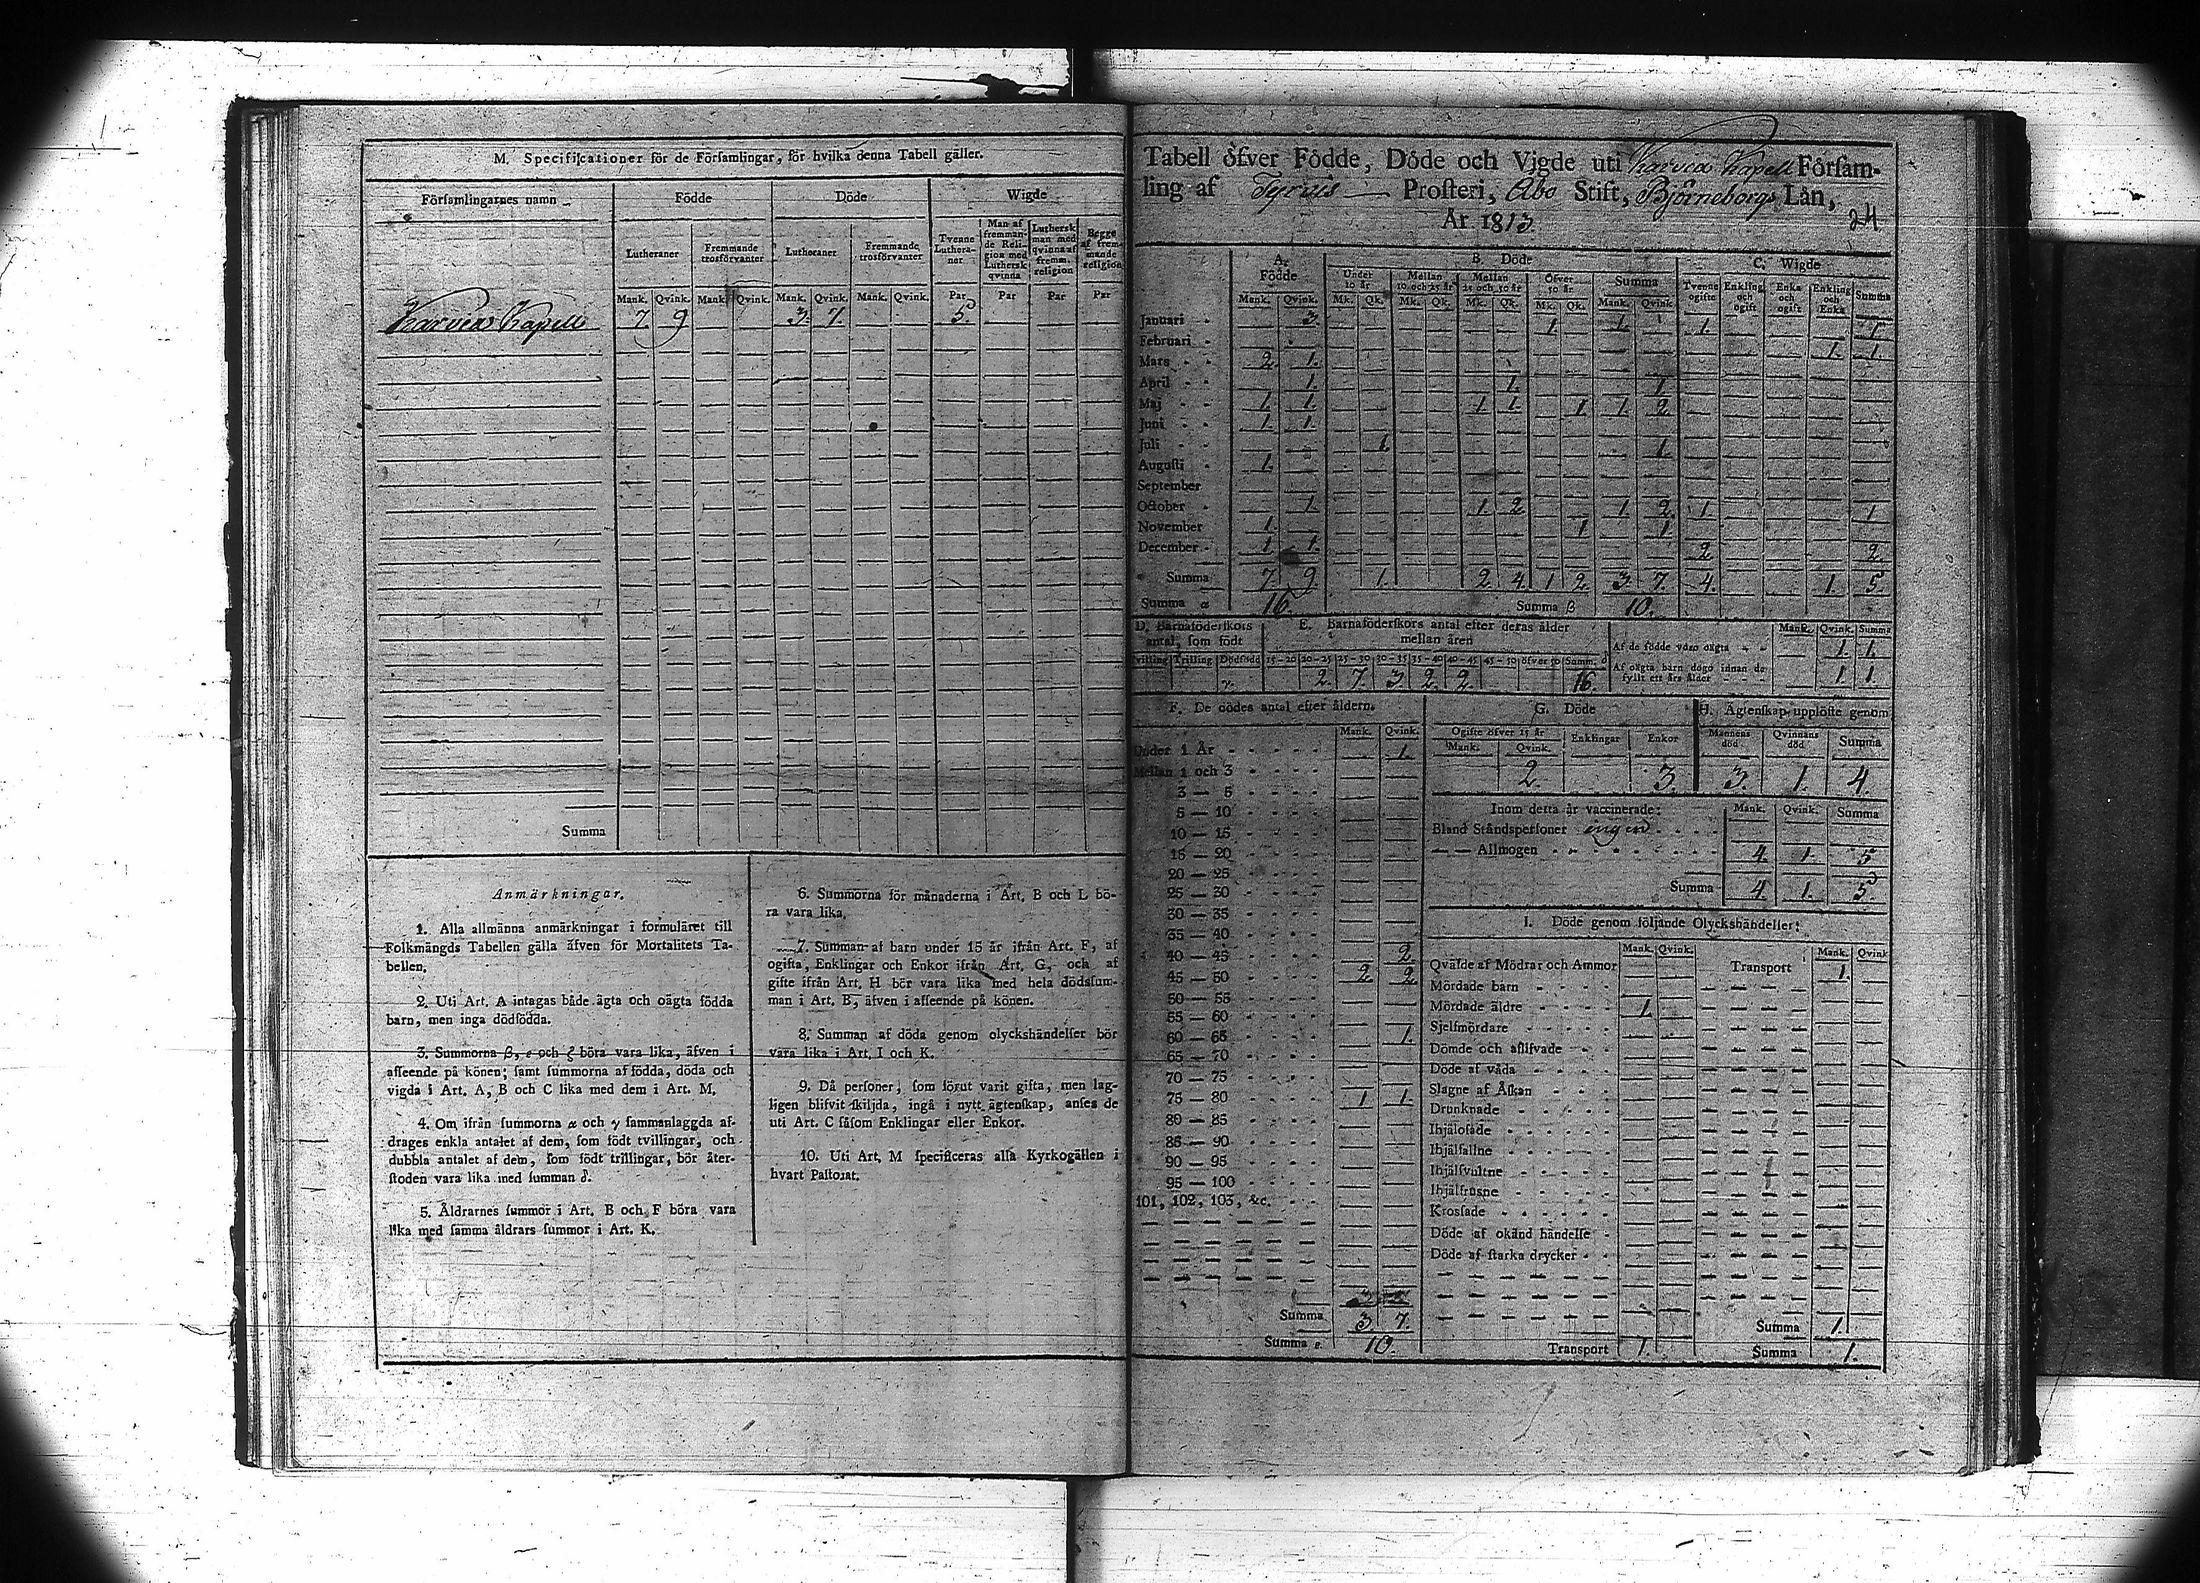 M. Specificationer för de Församlingar, för hvilka denna Tabell gäller.
Församlingarnes namn
Födde
Döde
Wigde
Lutheraner
Fremmande trosförvanter
Lutheraner
Fremmande trosförvanter
Tvenne Lutheraner
Man af fremmande Religion med Luthersk qvinna
Luthersk man med qvinna af fremm. religion
Begge af fremmande religion
Mank. Qvink. Mank. Qvink. Mank. Qvink. Mank. Qvink. Par Par Par Par
Karvia Kapell 7. 9 3. 7. 5.
Summa
Anmärkningar.
1. Alla allmänna anmärkningar i formuläret till
Folkmängds Tabellen gälla äfven för Mortalitets Ta-
bellen.
2. Uti Art. A intagas både ägta och oägta födda
barn, men inga dödfödda.
3. Summorna β, ε och ξ böra vara lika, äfven i
afseende på könen; samt summorna af födda, döda och
vigda i Art. A, B och C lika med dem i Art. M.
4. Om ifrån summorna α och γ sammanlaggda af-
drages enkla antalet af dem, som födt tvillingar, och
dubbla antalet af dem, som födt trillingar, bör åter-
stoden vara lika med summan δ.
5. Åldrarnes summor i Art. B och F böra vara
lika med samma åldrars summor i Art. K.
6. Summorna för månaderna i Art. B och L bö-
ra vara lika.
7. Summan af barn under 15 år ifrån Art. F, af
ogifta, Enklingar och Enkor ifrån Art. G, och af
gifte ifrån Art. H bör vara lika med hela dödssum-
man i Art. B, äfven i afseende på könen.
8. Summan af döda genom olyckshändelser bör
vara lika i Art. I och K.
9. Då personer, som förut varit gifta, men lag-
ligen blifvit skiljda, ingå i nytt ägtenskap, anses de
uti Art. C såsom Enklingar eller Enkor.
10. Uti Art. M specificeras alla Kyrkogällen i
hvart Pastorat.
Tabell öfver Födde, Döde och Vigde uti Karvia Kapell Försam-
ling af Tyrvis Prosteri, Åbo Stift, Björneborgs Län,
År 1813.
24
A. Födde
B. Döde
C. Wigde
Under 10 år
Mellan 10 och 25 år
Mellan 25 och 50 år
Öfver 50 år
Summa
Tvenne ogifte
Enkling och ogift
Enka och ogift
Enkling och Enka
Summa
Mank. Qvink. Mk. Qk. Mk. Qk. Mk. Qk. Mk. Qk. Mank. Qvink
Januari 3. 1 1. 1. 1
Februari 1. 1.
Mars 2. 1.
April 1. 1. 1.
Maj 1. 1. 1 1. 1 1 2.
Juni 1. 1.
Juli 1. 1.
Augusti 1.
September
October 1. 1 2 1 2. 1 1
November 1. 1 1
December 1. 1. 2. 2.
Summa 7. 9. 1. 2. 4. 1 2. 3. 7. 4. 1. 5.
Summa α 16. Summa β 10.
D. Barnaföderskors antal, som födt
E. Barnaföderskors antal efter deras ålder mellan åren
Tvilling Trilling Dödfödd 15-20 20-25 25-30 30-35 35-40 40-45 45-50 öfver 50 Summ. δ
γ. 2. 7. 3. 2. 2. 16.
Mank. Qvink. Summa
Af de födde voro oägta 1. 1.
Af oägta barn dogo innan de
fyllt ett års ålder 1 1.
F. De dödes antal efter åldern.
Mank. Qvink.
Under 1 År 1.
Mellan 1 och 3
3 — 5
5 — 10
10 — 15
15 — 20
20 — 25
25 — 30
30 — 35
35 — 40
40 — 45 2.
45 — 50 2. 2
50 — 55
55 — 60
60 — 65 1.
65 — 70
70 — 75
75 — 80 1 1.
80 — 85
85 — 90
90 — 95
95 — 100
101, 102, 103, &c.
Summa 3. 7.
Summa ε. 10.
G. Döde
Ogifte öfver 15 år
Enklingar
Enkor
Mank. Qvink.
2. 3.
H. Ägtenskap upplöste genom
Mannens död
Qvinnans död
Summa
3. 1. 4.
Inom detta år vaccinerade: Mank. Qvink. Summa
Bland Ståndspersoner ingen
— — Allmogen 4. 1. 5
Summa 4. 1. 5.
I. Döde genom följande Olyckshändelser:
Mank. Qvink.
Mank. Qvink
Qväfde af Mödrar och Ammor
Transport 1.
Mördade barn
Mördade äldre 1.
Sjelfmördare
Dömde och aflifvade
Döde af våda
Slagne af Åskan
Drunknade
Ihjälosade
Ihjälfallne
Ihjälsvultne
Ihjälfrusne
Krossade
Döde af okänd händelse
Döde af starka drycker
Summa 1.
Transport 1.
Summa 1.